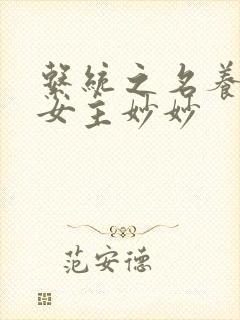 繫統之名養
女主妙妙
范安德